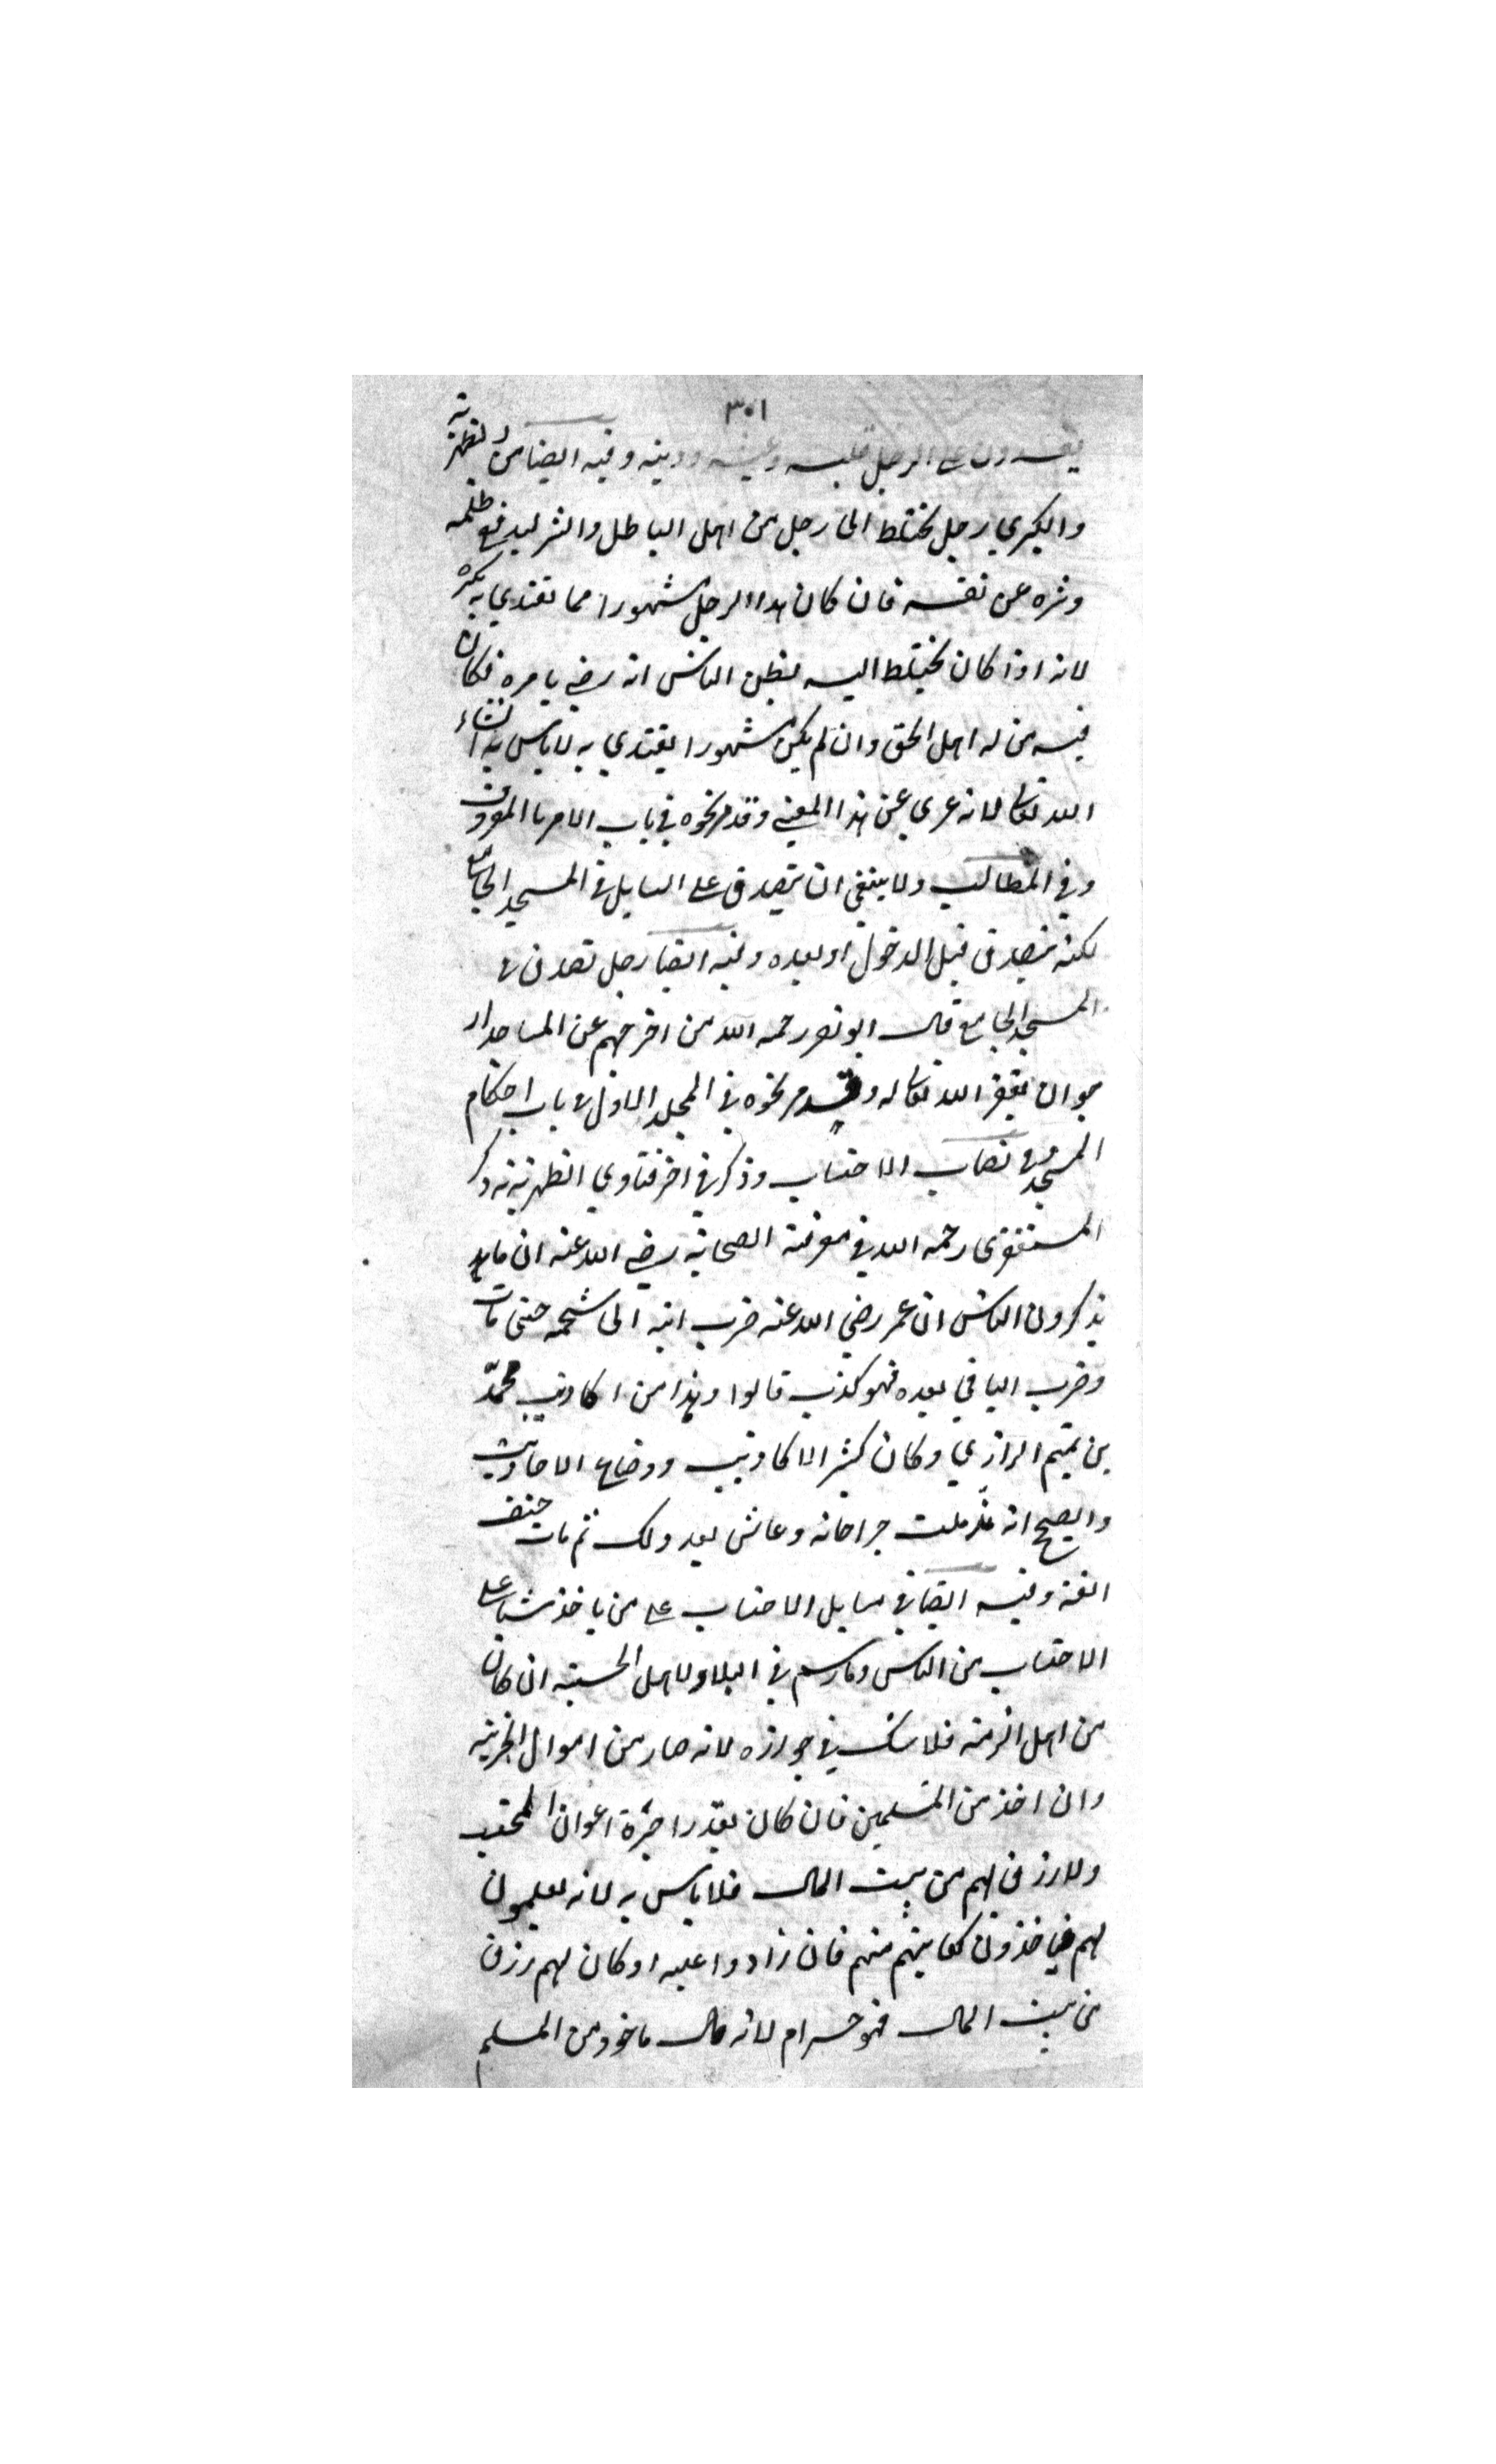 ٣٠١
يفسدون على الرجل قلبه وعيشه ودينه وفيه ايضا من الظهيرية
والكبرى رجل يختلط الى رجل من اهل الباطل والشر ليدفع ظلمه
وشره عن نفسه فان كان هذا الرجل مشهورا مما يقتدي به يكره
لانه اذا كان يختلط اليه يظن الناس انه رضي بامره فكان
فيه مذلة اهل الحق وان لم يكن مشهورا يقتدي به لا باس به انشاء
الله تعالى لانه عري عن هذا المعنى وقد مر نحوه في باب الامر بالمعروف
وفي المطالب ولا ينبغي ان يتصدق على السايل في المسجد الجامع
لكنه يتصدق قبل الدخول او بعده وفيه ايضا رجل تصدق في
المسجد الجامع قال ابو نصر رحمه الله من اخرجهم عن المساجد ار
جو ان يغفر الله تعالى له وقد مر نحوه في المجلد الاول في باب احكام
المسجد وفي نصاب الاحتساب وذكر في اخر فتاوي الظهيرية ذكر
المستغفري رحمه الله في معرفة الصحابة رضي الله عنه ان ما
يذكرون الناس ان عمر رضي الله عنه ضرب ابنه ابى شحمه حتى مات
وضرب الباقي بعده فهو كذب قالوا وهذا من اكاذيب محمد
بن تميم الرازي وكان كثير الاكاذيب ووضاع الاحاديث
والصحيح انه اندملت جراحاته وعاش بعد ذلك ثم مات حتف
انفه وفيه ايضا في مسايل الاحتساب على من ياخذ شيا على
الاحتساب من الناس وما رسم في البلاد لاهل الحسبة ان كان
من اهل الذمة فلا شك في جوازه لانه صار من اموال الجزية
وان اخذ من المسلمين فان كان بقدر اجرة اعوان المحتسب
ولا رزق لهم من بيت المال فلا باس به لانه يعلمون
لهم فياخذون كفايتهم منهم فان زادوا عليه او كان لهم رزق
من بيت المال فهو حرام لانه مال ماخوذ من المسلم